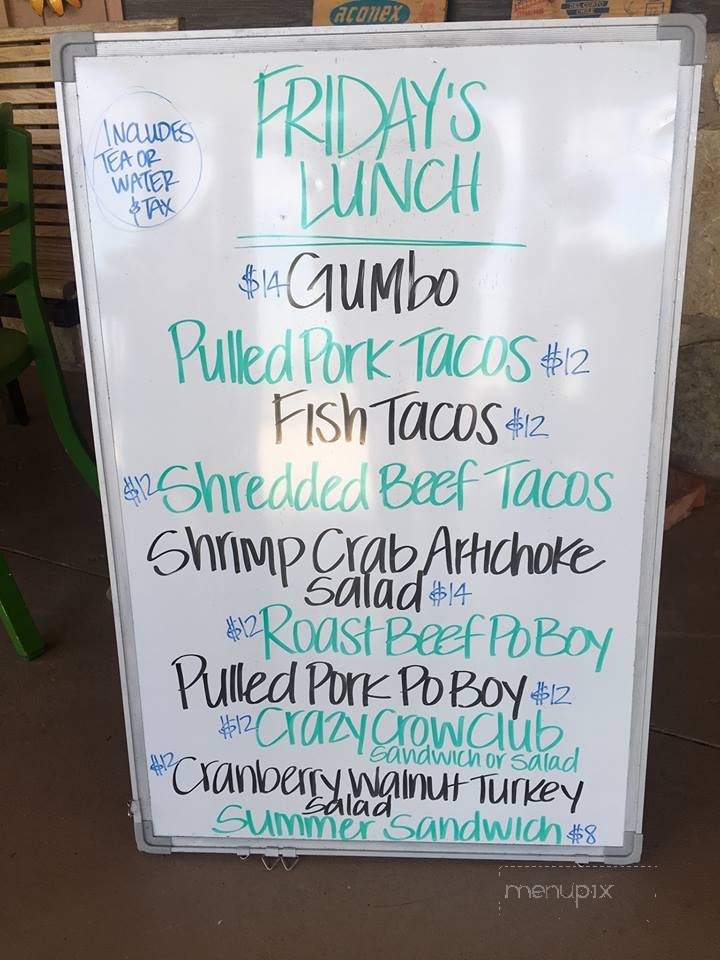 aconex
INCLUDES
TEA OR
WATER
& TAX
FRIDAY'S
LUNCH
$14 GUMbo
Pulled Pork Tacos $12
Fish Tacos $12
$12 Shredded Beef Tacos
Shrimp Crab Artichoke
Salad $14
$12 Roast Beef Po Boy
Pulled Pork Po Boy $12
$12 Crazy Crow Club
Sandwich or Salad
$12 Cranberry Walnut Turkey
Salad
Summer Sandwich $8
menupix